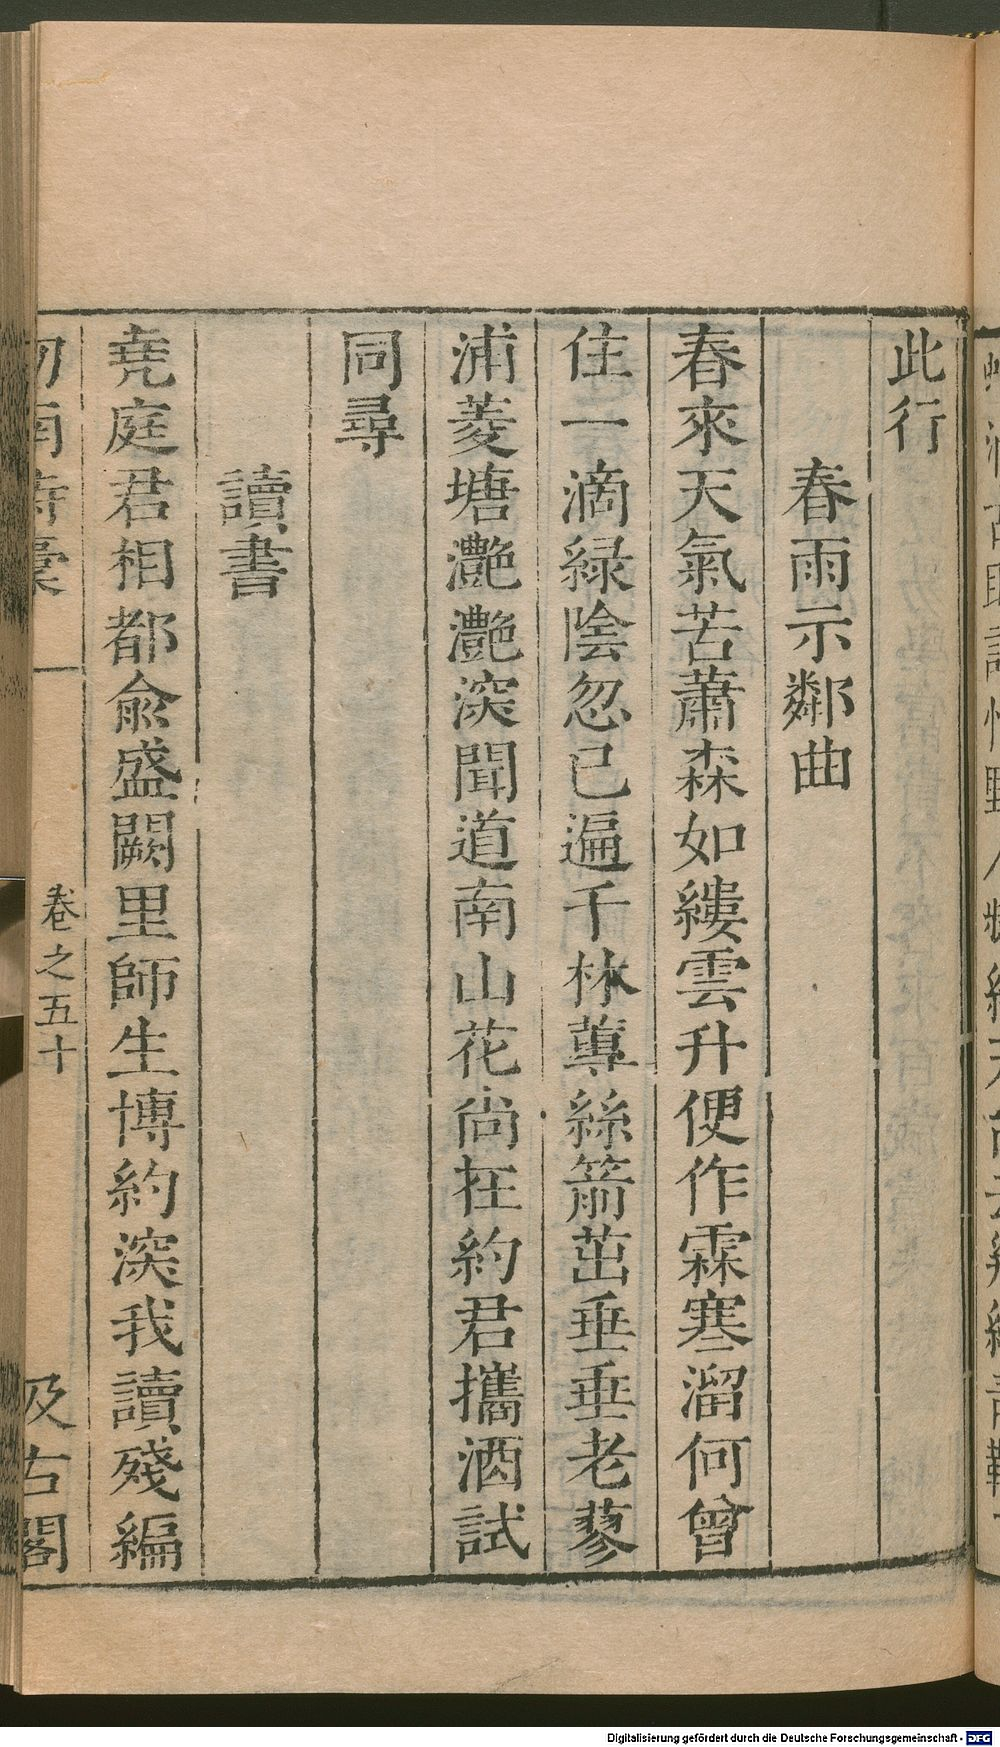 此行
春雨示鄰曲
春來天氣苦蕭森如縷雲升便作霖寒溜何曾
住一滴緑陰忽已遍千林蓴絲箭茁垂垂老蓼
浦菱塘灔灔深聞道南山花尚在約君攜酒試
同尋
讀書
堯庭君相都俞盛闕里師生博約深我讀殘編
劒南詩稾
卷之五十
汲古閣
Digitalisierung gefördert durch die Deutsche Forschungsgemeinschaft - DFG